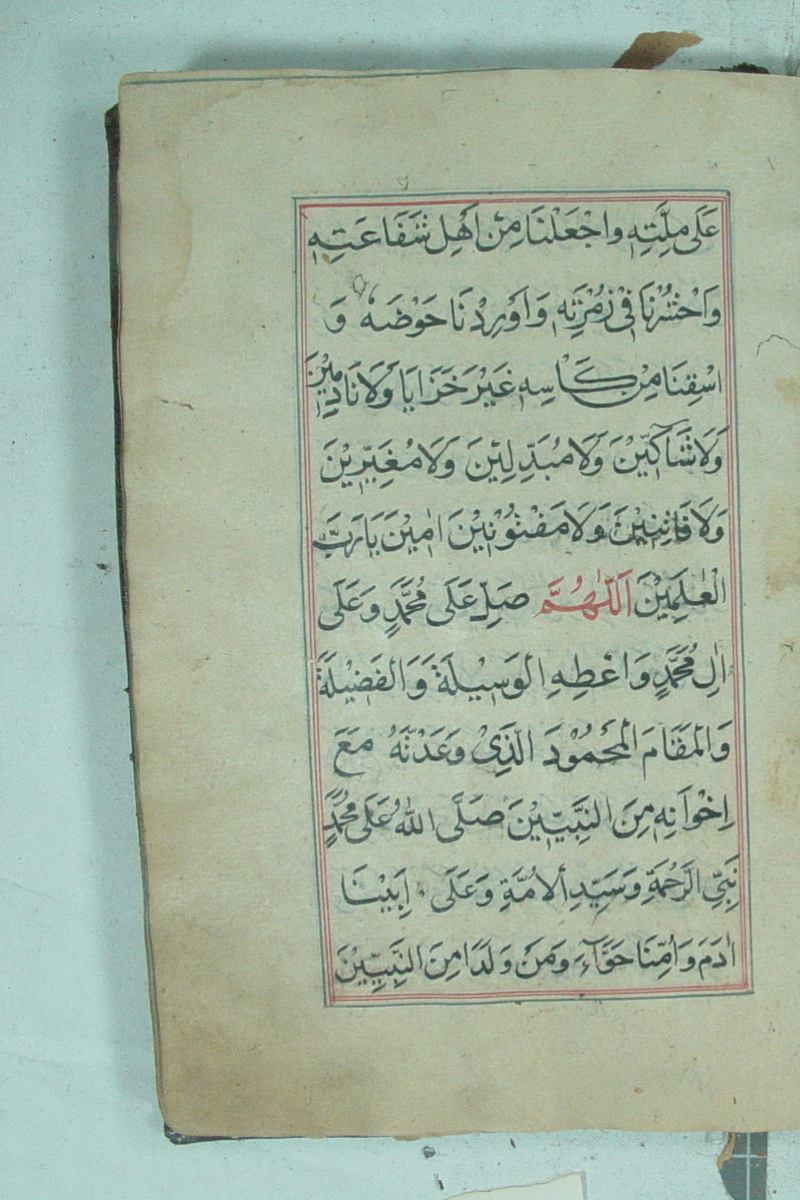 عَلَى مِلَّتِهِ وَاجْعَلْنَا مِنْ اَهْلِ شَفَاعَتِهِ
وَاحْشُرْنَا فِيْ زُمْرَتِهِ وَاَوْرِدْنَا حَوْضَهُ وَ
اسْقِنَا مِنْ كَاْسِهِ غَيْرَ خَزَايَا وَلَا نَادِمِيْنَ
وَلَا شَاكِّيْنَ وَلَا مُبَدِّلِيْنَ وَلَا مُغَيِّرِيْنَ
وَلَا فَاتِنِيْنَ وَلَا مَفْتُوْنِيْنَ اٰمِيْنَ يَا رَبَّ
الْعٰلَمِيْنَ اَللّٰهُمَّ صَلِّ عَلَى مُحَمَّدٍ وَعَلَى
اٰلِ مُحَمَّدٍ وَاَعْطِهِ الْوَسِيْلَةَ وَالْفَضِيْلَةَ
وَالْمَقَامَ الْمَحْمُوْدَ الَّذِيْ وَعَدْتَّهُ مَعَ
اِخْوَانِهِ مِنَ النَّبِيِّيْنَ صَلَّى اللّٰهُ عَلَى مُحَمَّدٍ
نَبِيِّ الرَّحْمَةِ وَسَيِّدِ الْاُمَّةِ وَعَلَى اَبِيْنَا
اٰدَمَ وَاُمِّنَا حَوَّآءَ وَمَنْ وَلَدَا مِنَ النَّبِيِّيْنَ